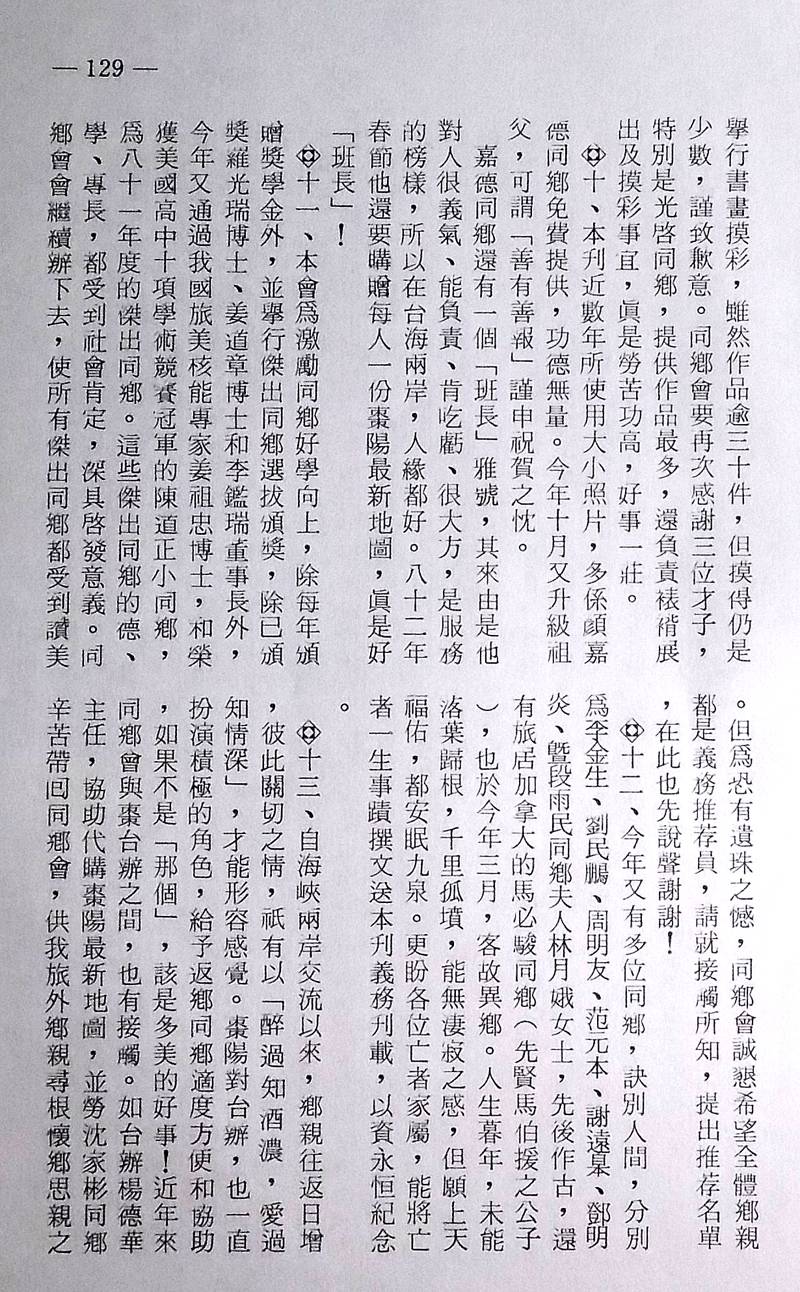 — 129 —
舉行書畫摸彩，雖然作品逾三十件，但摸得仍是
少數，謹致歉意。同鄉會要再次感謝三位才子，
特別是光啓同鄉，提供作品最多，還負責裱褙展
出及摸彩事宜，眞是勞苦功高，好事一莊。
十、本刊近數年所使用大小照片，多係顔嘉
德同鄉免費提供，功德無量。今年十月又升級祖
父，可謂「善有善報」謹申祝賀之忱。
嘉德同鄉還有一個「班長」雅號，其來由是他
對人很義氣、能負責、肯吃虧、很大方，是服務
的榜樣，所以在台海兩岸，人緣都好。八十二年
春節他還要購贈每人一份棗陽最新地圖，眞是好
「班長」！
十一、本會爲激勵同鄉好學向上，除每年頒
贈獎學金外，並舉行傑出同鄉選拔頒獎，除已頒
獎羅光瑞博士、姜道章博士和李鑑瑞董事長外，
今年又通過我國旅美核能專家姜祖忠博士，和榮
獲美國高中十項學術競賽冠軍的陳道正小同鄉，
爲八十一年度的傑出同鄉。這些傑出同鄉的德、
學、專長，都受到社會肯定，深具啓發意義。同
鄉會會繼續辦下去，使所有傑出同鄉都受到讚美
。但爲恐有遺珠之憾，同鄉會誠懇希望全體鄉親
都是義務推荐員，請就接觸所知，提出推荐名單
，在此也先說聲謝謝！
十二、今年又有多位同鄉，訣別人間，分別
爲李金生、劉民鵬、周明友、范元本、謝遠㬎、鄧明
炎、曁段雨民同鄉夫人林月娥女士，先後作古，還
有旅居加拿大的馬必駿同鄉（先賢馬伯援之公子
），也於今年三月，客故異鄉。人生暮年，未能
落葉歸根，千里孤墳，能無淒寂之感，但願上天
福佑，都安眠九泉。更盼各位亡者家屬，能將亡
者一生事蹟撰文送本刊義務刊載，以資永恒紀念
。
十三、自海峽兩岸交流以來，鄉親往返日增
，彼此關切之情，祇有以「醉過知酒濃，愛過
知情深」，才能形容感覺。棗陽對台辦，也一直
扮演積極的角色，給予返鄉同鄉適度方便和協助
，如果不是「那個」，該是多美的好事！近年來
同鄉會與棗台辦之間，也有接觸。如台辦楊德華
主任，協助代購棗陽最新地圖，並勞沈家彬同鄉
辛苦帶回同鄉會，供我旅外鄉親尋根懷鄉思親之